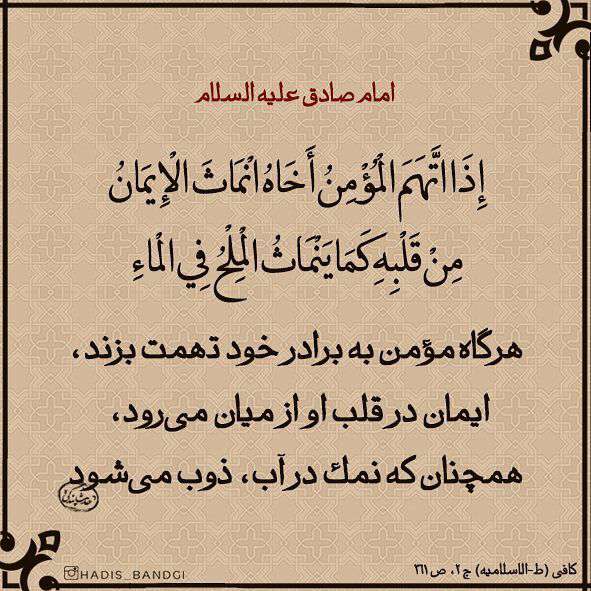 امام صادق علیه السلام
إِذَا اتَّهَمَ الْمُؤْمِنُ أَخَاهُ انْمَاثَ الْإِيمَانُ
مِنْ قَلْبِهِ كَمَا يَنْمَاثُ الْمِلْحُ فِي الْمَاءِ
هرگاه مؤمن به برادر خود تهمت بزند،
ایمان در قلب او از میان می‌رود،
همچنان که نمک در آب، ذوب می‌شود
HADIS_BANDGI
کافی (ط-الاسلامیه) ج ۲، ص ۳۶۱